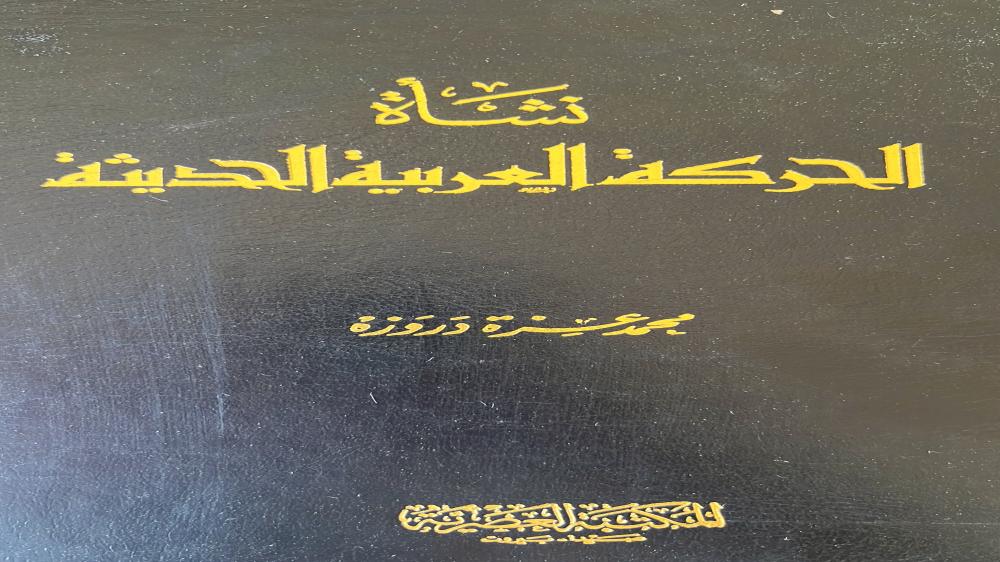 نشأة
الحركة العربية الحديثة
محمد عزة دروزة
المكتبة العصرية
صيدا - بيروت